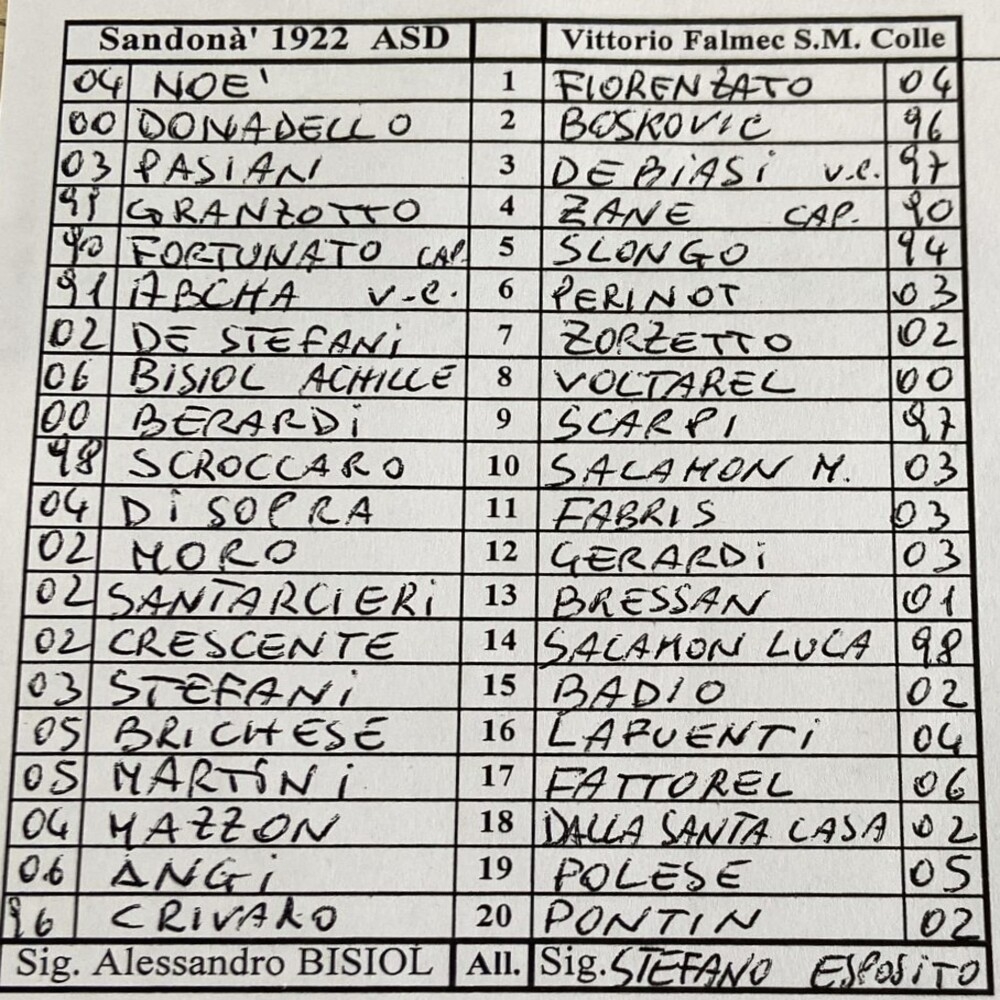 Sandonà' 1922 ASD Vittorio Falmec S.M. Colle
04 NOE' 1 FIORENZATO 04
00 DONADELLO 2 BOSKOVIC 96
03 PASIANI 3 DE BiASi v.c. 97
GRANZOTTO 4 ZANE CAP. 90
90 FORTUNATO CAP. 5 SLONGO 94
91 ABCHA v.c. 6 PERINOT 03
02 DE STEFANi 7 ZORZETTO 02
06 BISIOL ACHILLE 8 VOLTAREL 00
00 BERARDi 9 SCARPI 97
98 SCROCCARO 10 SALAMON M. 03
04 Di SOPRA 11 FABRIS 03
02 MORO 12 GERARDi 03
02 SANTARCIERi 13 BRESSAN 01
02 CRESCENTE 14 SALAMON LUCA 98
03 STEFANi 15 BADIO 02
05 BRICHESE 16 LAPUENTi 04
05 MARTINi 17 FATTOREL 06
04 MAZZON 18 DALLA SANTA CASA 02
06 ANGi 19 POLESE 05
96 CRIVARO 20 PONTIN 02
Sig. Alessandro BISIOL All. Sig. STEFANO ESPOSiTO